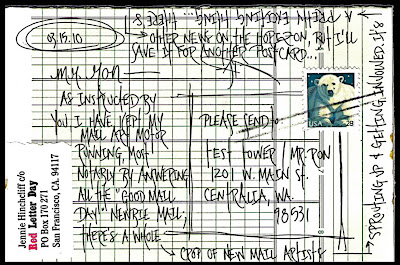 03.15.10
→ OTHER NEWS ON THE HORIZON, BUT I'LL
SAVE IT FOR ANOTHER POSTCARD...
A PRETTY EXCITING THING... THERE'S
MY RON
AS INSTRUCTED BY
YOU I HAVE KEPT MY
MAIL ART MOTOR
RUNNING, MOST
NOTABLY BY ANSWERING
ALL THE "GOOD MAIL
DAY" NEWBIE MAIL;
THERE'S A WHOLE
CROP OF NEW MAIL ARTISTS
SPROUTING UP & GETTING INVOLVED. IT'S
PLEASE SEND TO:
TEST TOWER / MR. RON
1201 W. MAIN ST.
CENTRALIA, WA.
98531
USA 28
Jennie Hinchcliff c/o
Red Letter Day
PO Box 170 271
San Francisco, CA. 94117